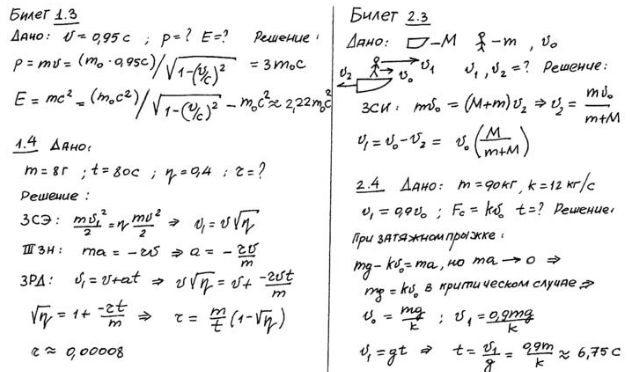 Билет 1.3
Дано: υ = 0,95c ; p = ? E = ? Решение:
p = mυ = (m₀ · 0,95c)/√(1-(υ/c)²) = 3m₀c
E = mc² = (m₀c²)/√(1-(υ/c)²) - m₀c² ≈ 2,22m₀c²
1.4 Дано:
m = 8г ; t = 80c ; η = 0,4 ; τ = ?
Решение:
ЗСЭ: mυ₁²/2 = η mυ²/2 ⇒ υ₁ = υ√η
III ЗН: ma = -τυ ⇒ a = -τυ/m
ЗРД: υ₁ = υ+at ⇒ υ√η = υ + -τυt/m
√η = 1 + -τt/m ⇒ τ = m/t (1-√η)
τ ≈ 0,00008
Билет 2.3
Дано: – M – m , υ₀
υ₂ υ₀ υ₁ υ₁, υ₂ = ? Решение:
ЗСИ: mυ₀ = (M+m)υ₂ ⇒ υ₂ = mυ₀/m+M
υ₁ = υ₀ - υ₂ = υ₀(M/m+M)
2.4 Дано: m = 90кг, k = 12 кг/с
υ₁ = 0,9υ₀ ; Fc = kυ₀ t = ? Решение:
При затяжном прыжке:
mg - kυ₀ = ma, но ma → 0 ⇒
mg = kυ₀ в критическом случае ⇒
υ₀ = mg/k ; υ₁ = 0,9mg/k
υ₁ = gt ⇒ t = υ₁/g = 0,9m/k ≈ 6,75 с